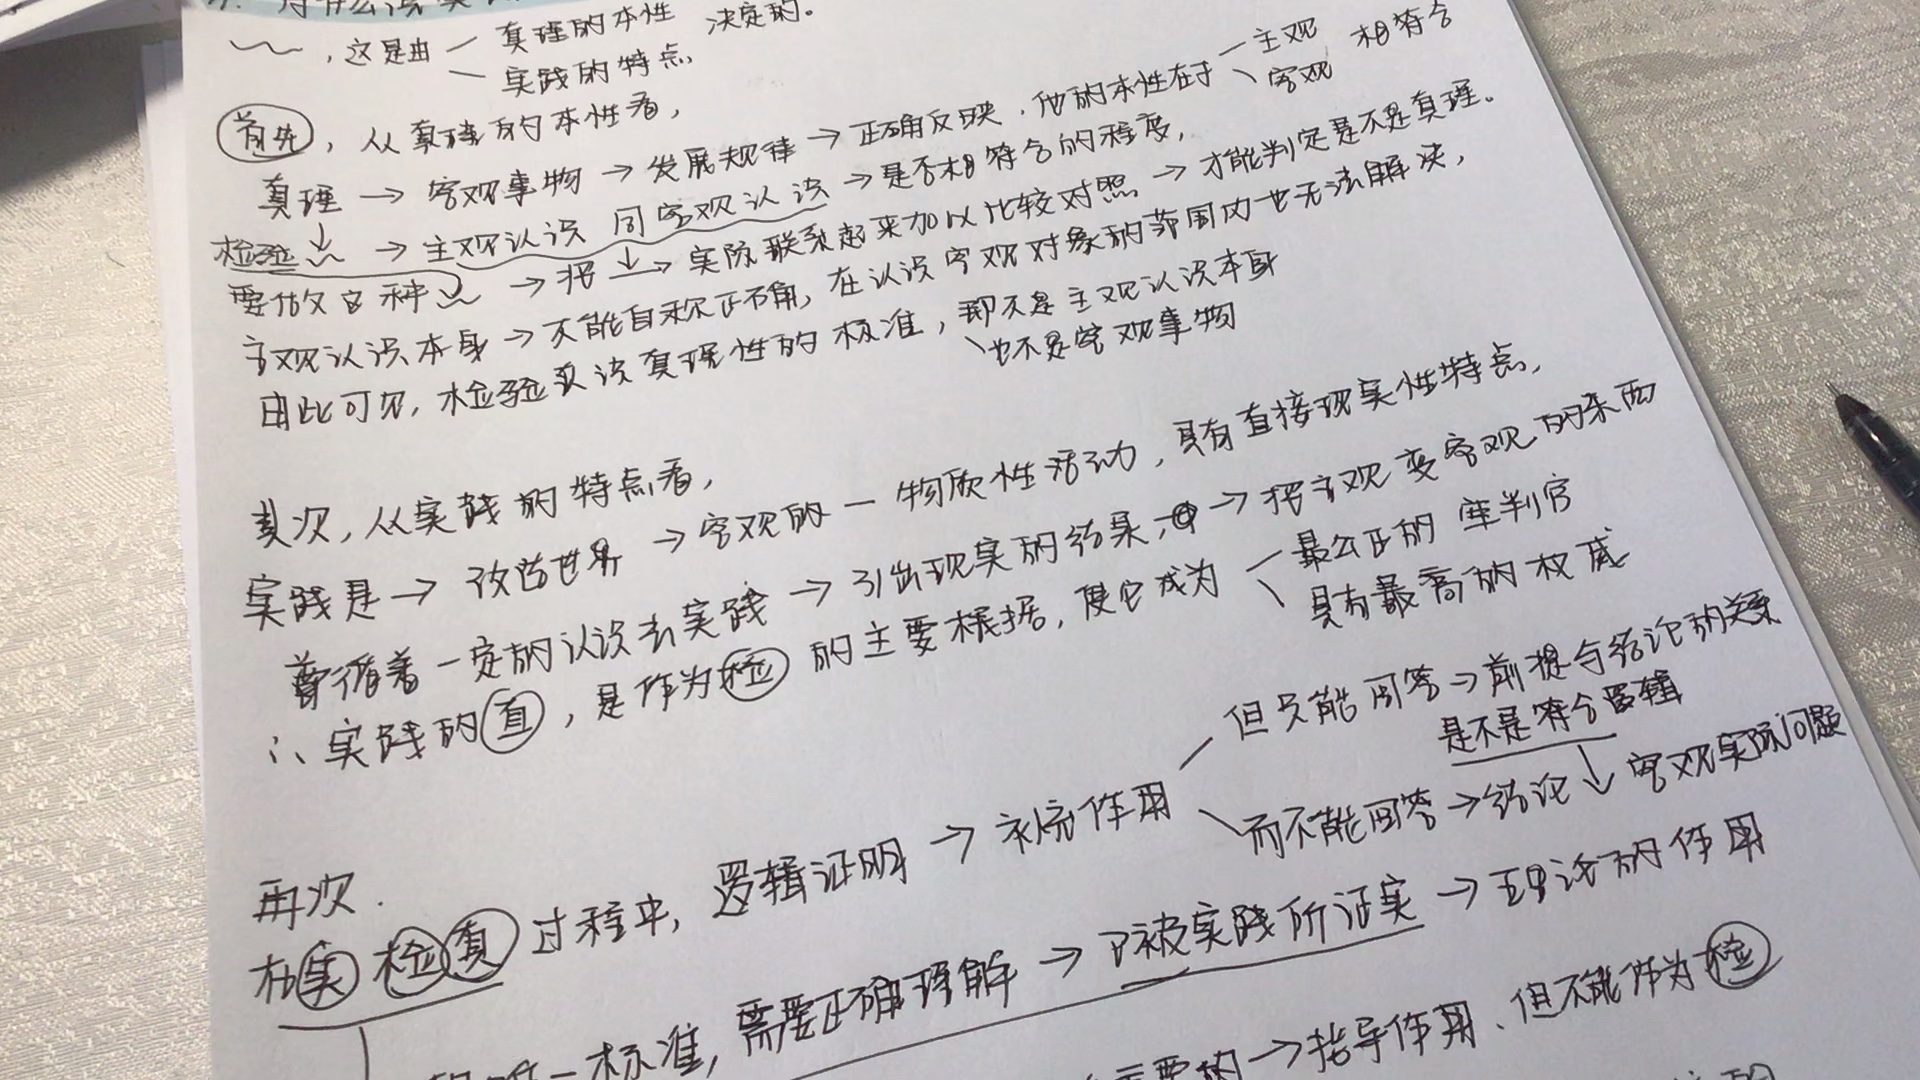 ，这是由 — 真理的本性 决定的。
— 实践的特点
首先，从真理的本性看，
真理 → 客观事物 → 发展规律 → 正确反映，他的本性在于 — 主观 相符合
\ 客观
检验 → 主观认识 同客观认识 → 是否相符合的程度，
要做这种 → 把 → 实际联系起来加以比较对照 → 才能判定是不是真理。
主观认识本身 → 不能自称正确，在认识客观对象的范围内也无法解决，
由此可见，检验认识真理性的标准，即不是主观认识本身
\ 也不是客观事物
其次，从实践的特点看，
实践是 → 改造世界 → 客观的 — 物质性活动，具有直接现实性特点，
遵循着一定的认识去实践 → 引出现实的结果， → 把主观变客观的东西
∴ 实践的直，是作为检的主要根据，使它成为 — 最公正的审判官
\ 具有最高的权威
再次.
在实检真过程中，逻辑证明 → 补充作用 — 但只能回答 → 前提与结论的关系
是不是符合逻辑
\ 而不能回答 → 结论 ↓ 客观实际问题
一标准，需要正确理解 → 被实践所证实 → 理论的作用
→ 指导作用、但不能作为检